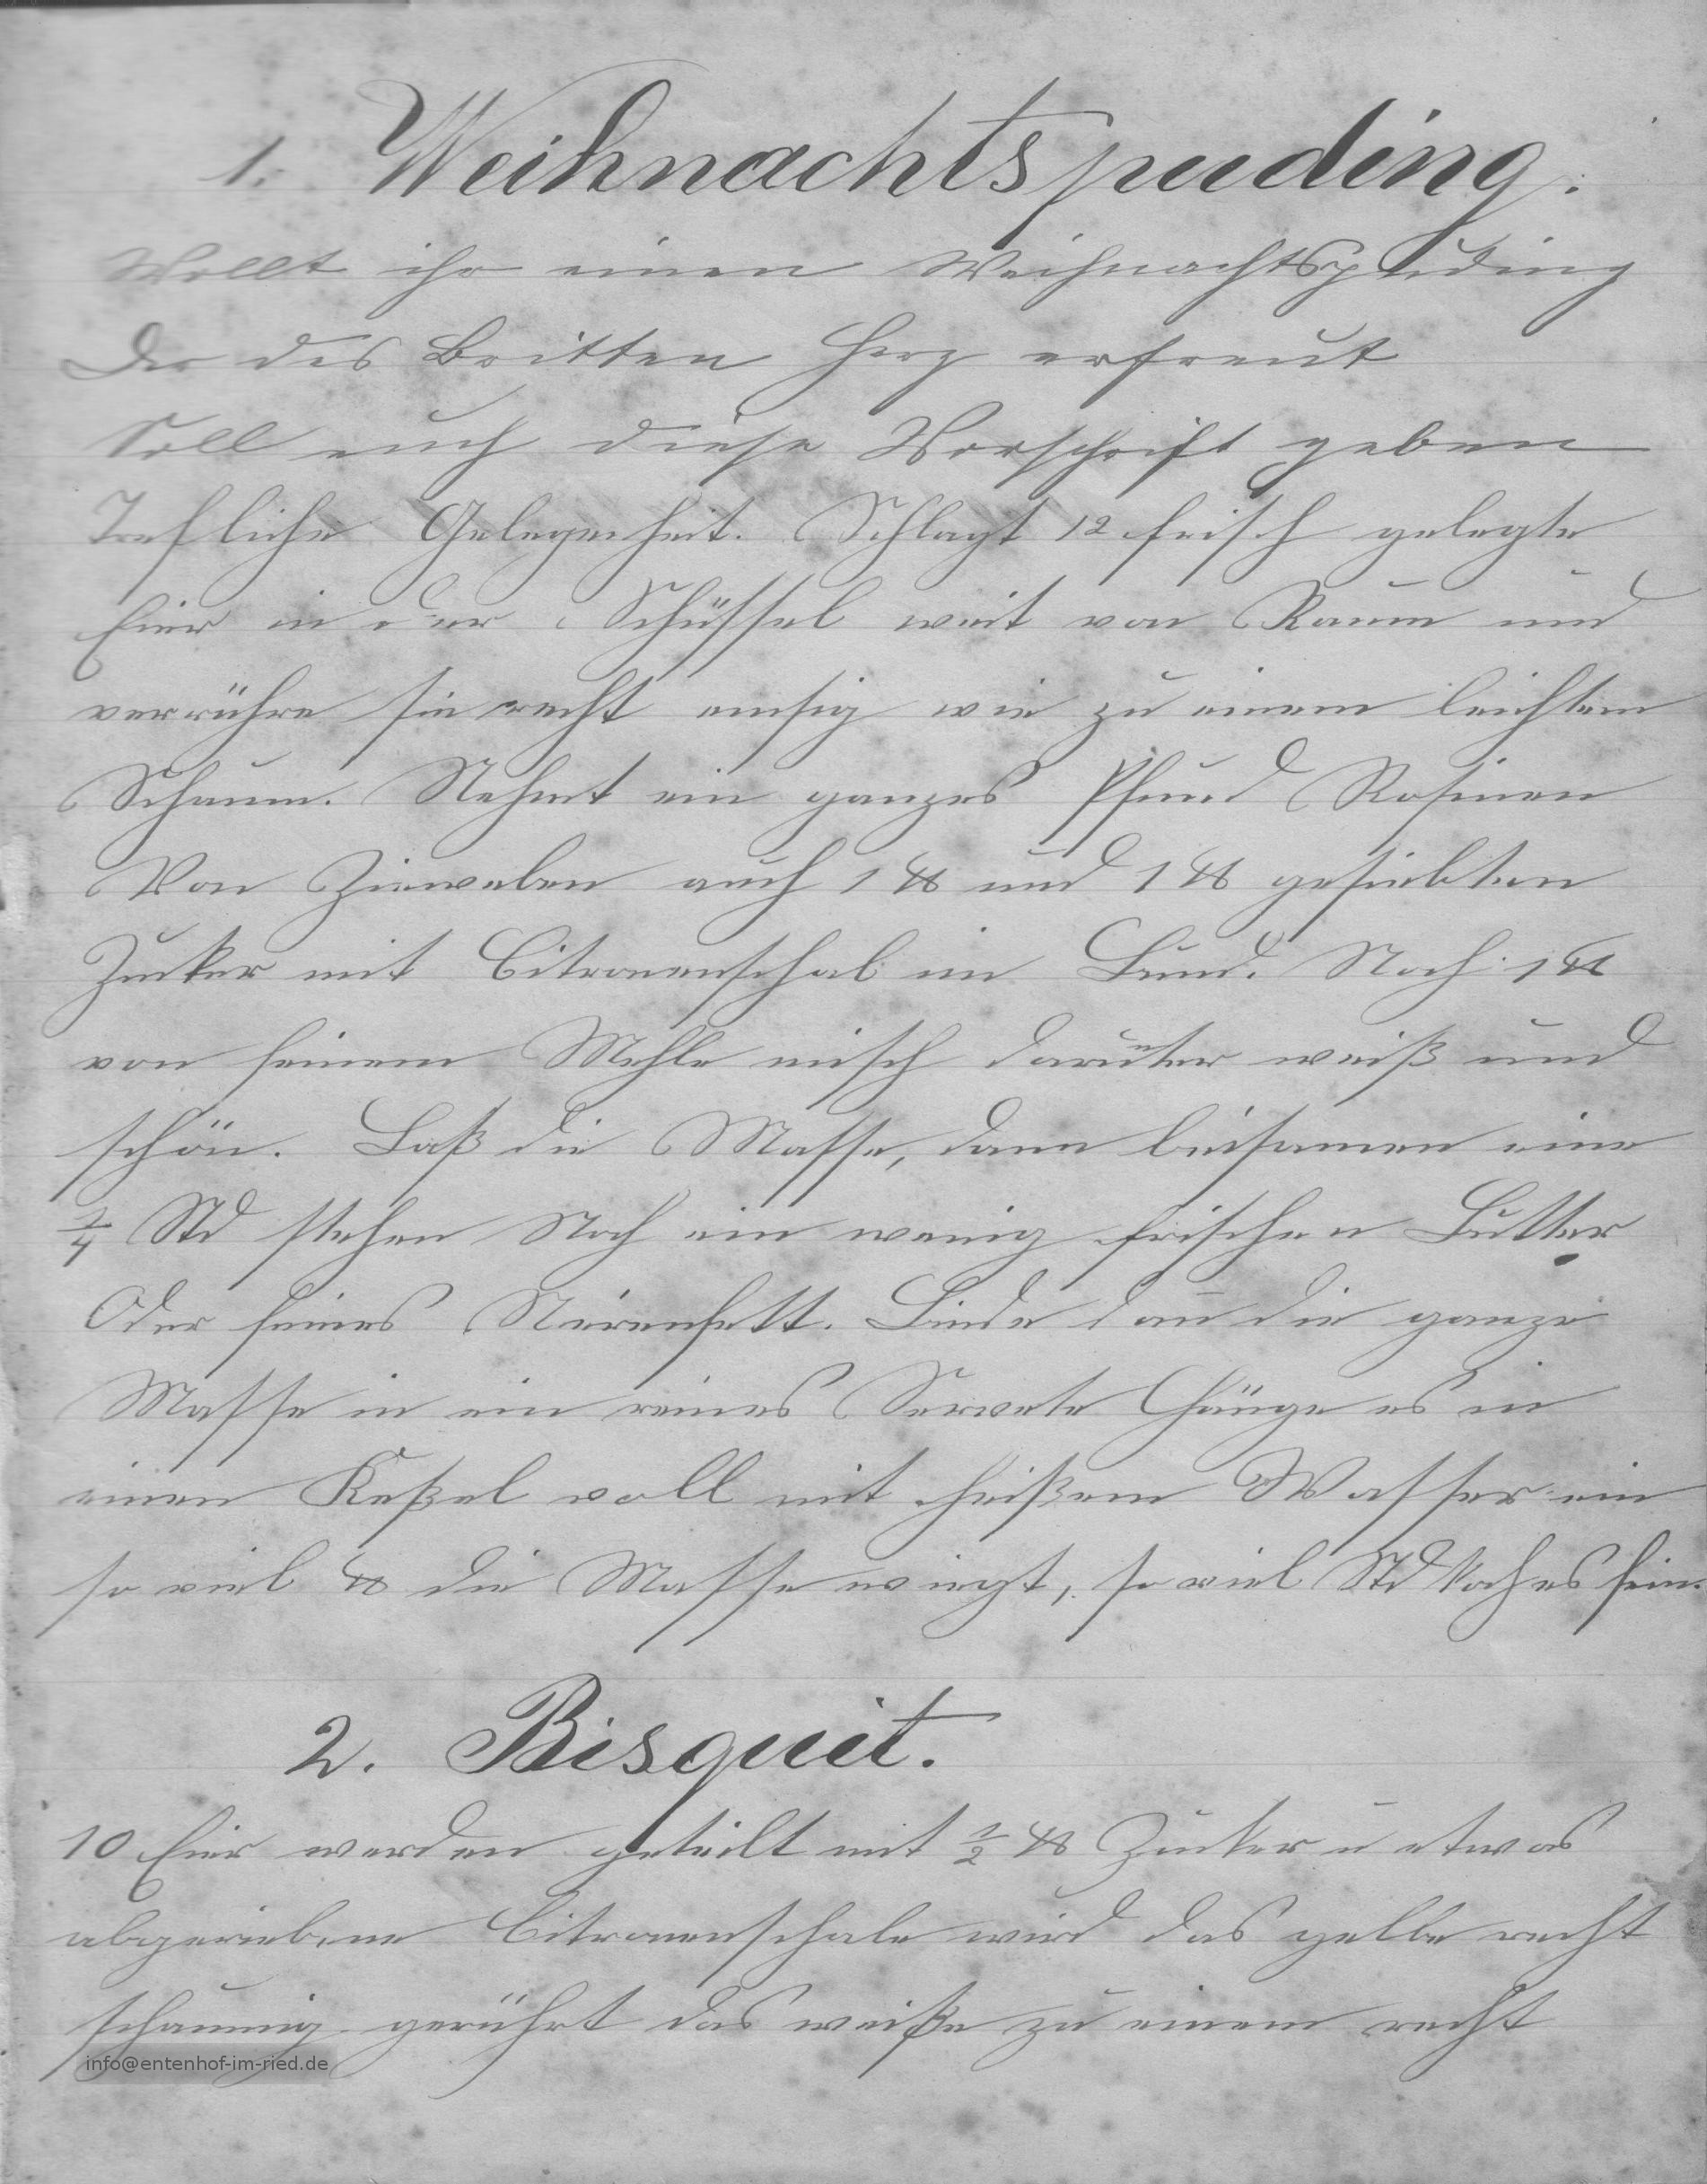 1. Weihnachtspuding.
Wollt ihr einen Weihnachtspuding
Der des Britten Herz erfreut
Soll euch diese Vorschrift geben
Trefliche Gelegenheit. Schlagt 12 frisch gelegte
Eier in der Schüssel weit von Raum und
verrühre sie recht emsig wie zu einem leichtem
Schaum. Nehmt ein ganzes Pfund Rosinen
Von Ziweben auch 1 ℔ und 1 ℔ gesiebten
Zucker mit Citronenschal im Bund. Noch 1 ℔
von feinem Mehle misch darunter weiß und
schön. Laß die Masse, dann beisamen eine
1/4 Std stehen Noch ein wenig frischen Butter
Oder feines Nierenfett. Binde dan̄ die ganze
Masse in ein reines Servete Hänge es in
einen Keßel voll mit heißem Wasser ein
so viel ℔ die Masse wiegt, so viel Std koch es fein.
2. Bisquit.
10 Eier werden geteilt mit 1/2 ℔ Zucker u etwas
abgeriebene Citronenschale wird das gelbe recht
schaumig gerührt das weiße zu einem recht
info@entenhof-im-ried.de